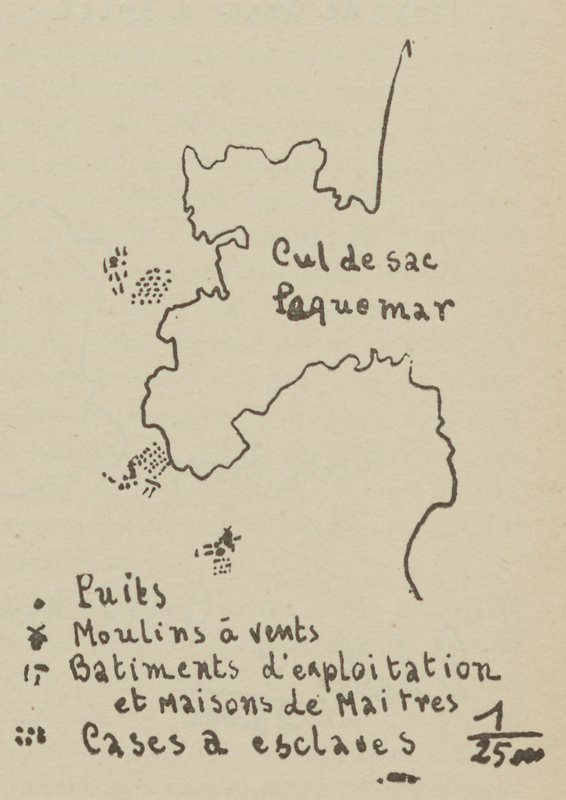 Cul de sac
Paquemar
Puits
Moulins à vents
Batiments d'exploitation
et Maisons de Maitres
Cases a esclaves
1
25000